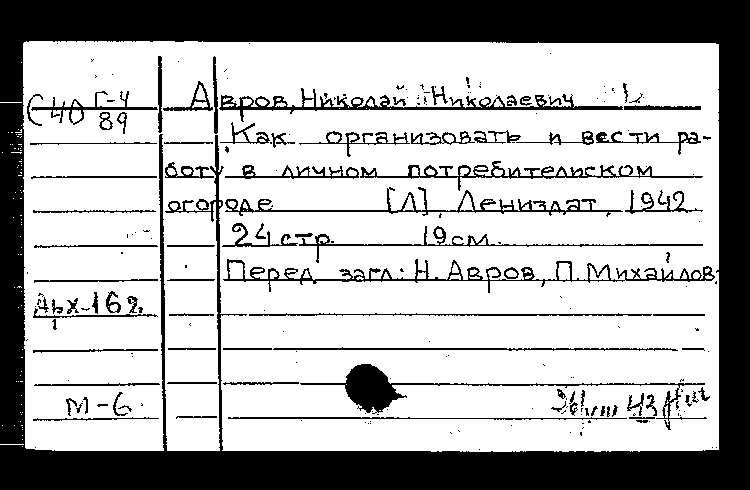 С40 Г-4
89
Авров, Николай Николаевич
Как организовать и вести ра-
боту в личном потребителиском
огороде [Л], Лениздат, 1942
24 стр. 19 см.
Перед загл: Н. Авров, П. Михайлов.
Арх-162
М-6
26/VIII 43